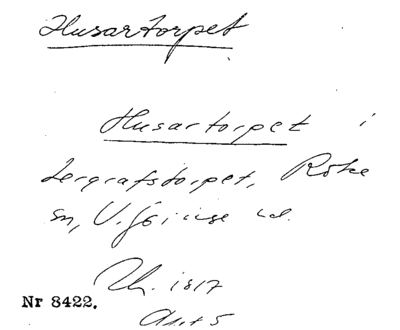 Husartorpet
Husartorpet i
Lergrafstorpet, Röke
sn, V. Göinge hd.
Lk. 1817
Nr 8422.
Akt 5